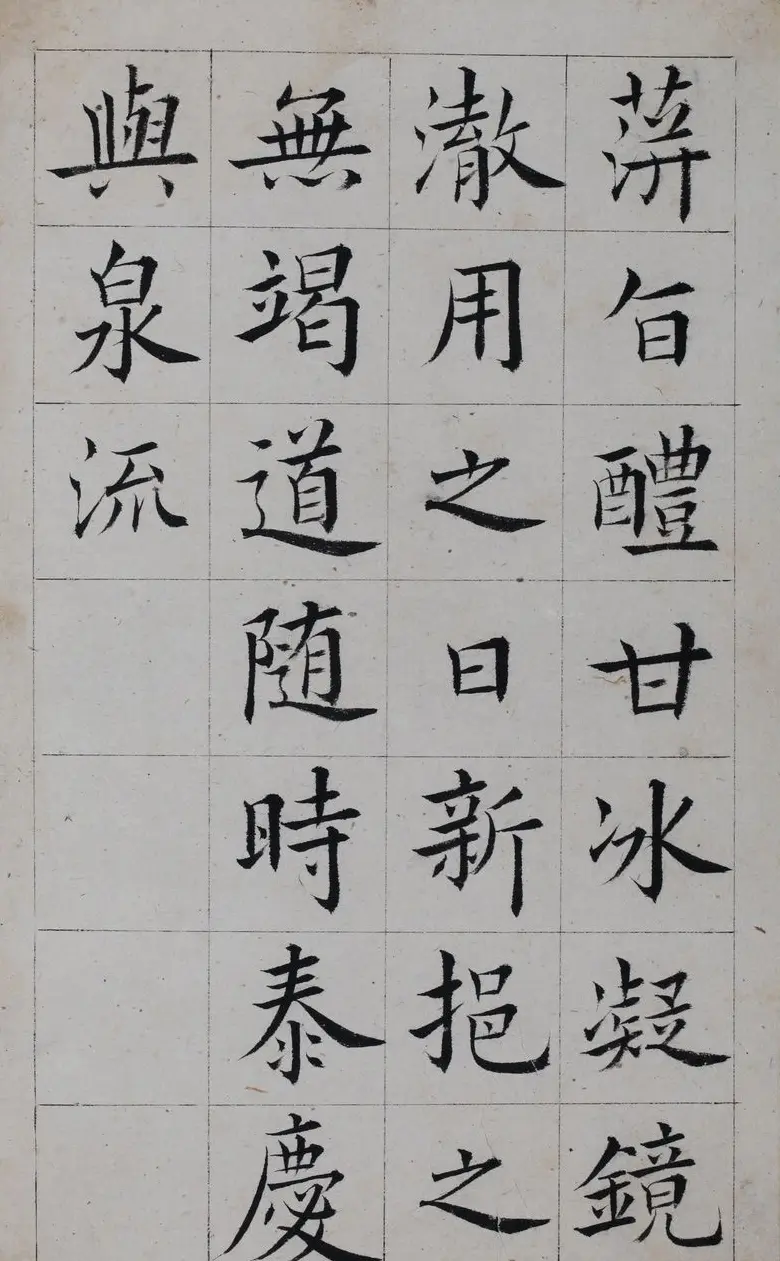 蓱旨醴甘冰凝鏡
澈用之日新挹之
無竭道随時泰慶
與泉流